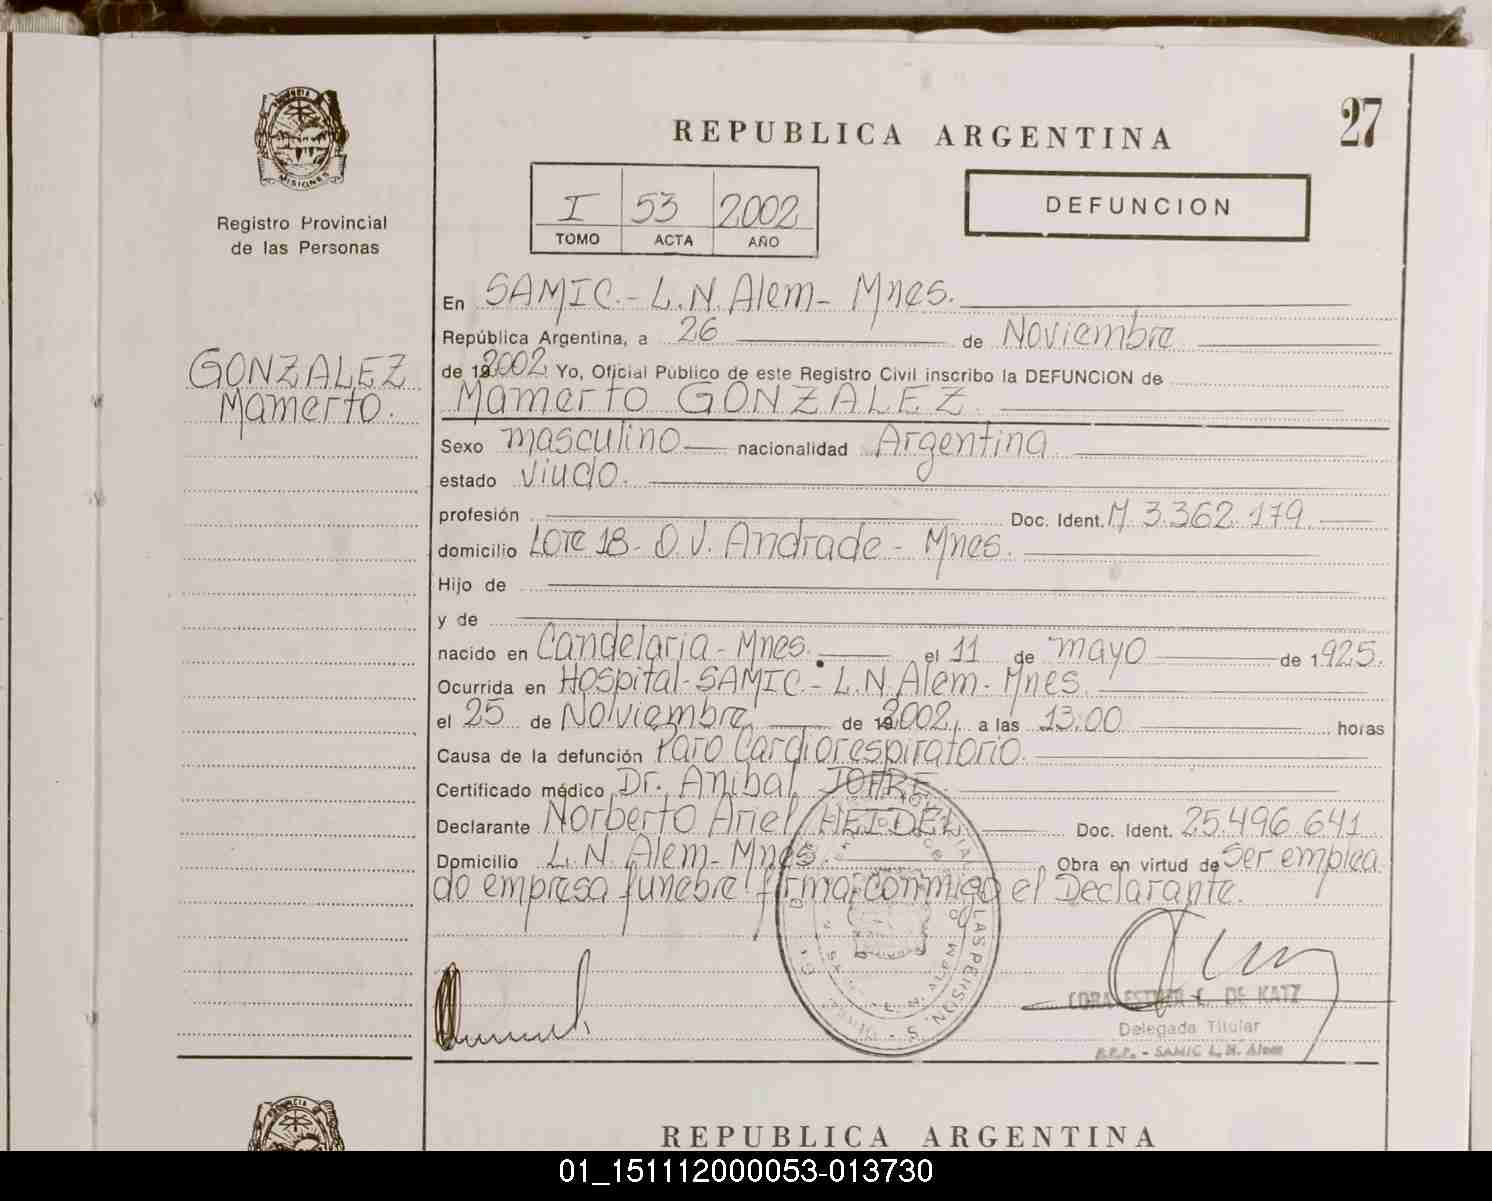 27
PROVINCIA
MISIONES
REPUBLICA ARGENTINA
I 53 2002
TOMO ACTA AÑO
DEFUNCION
Registro Provincial
de las Personas
GONZALEZ
Mamerto.
En SAMIC.- L.N. Alem- Mnes.
República Argentina, a 26 de Noviembre
de 192002 Yo, Oficial Público de este Registro Civil inscribo la DEFUNCION de
Mamerto GONZALEZ.
Sexo masculino nacionalidad Argentina
estado viudo.
profesión Doc. Ident. M 3.362.179
domicilio Lote 18- O.V. Andrade - Mnes.
Hijo de
y de
nacido en Candelaria- Mnes. el 11 de mayo de 1925.
Ocurrida en Hospital-SAMIC.- L.N. Alem- Mnes.
el 25 de Noviembre de 192002, a las 13:00 horas
Causa de la defunción Paro Cardiorespiratorio.
Certificado médico Dr. Anibal JOFRE
Declarante Norberto Ariel HEIDEL Doc. Ident. 25.496.641
Domicilio L.N. Alem- Mnes. Obra en virtud de Ser emplea
do empresa funebre firma conmigo el Declarante.
LAS PERSON S
L. N. ALEM
CORA ESTHER C. DE KATZ
Delegada Titular
R.P.P. - SAMIC L. N. Alem
PROVINCIA
REPUBLICA ARGENTINA
01_151112000053-013730